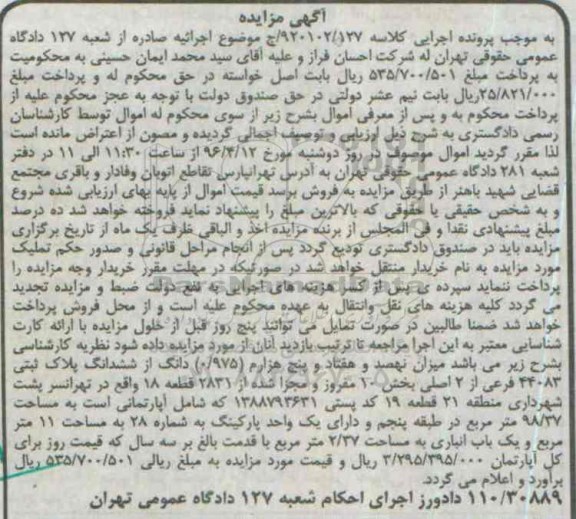 آگهی مزایده
به موجب پرونده اجرایی کلاسه ۹۲۰۱۰۲/۱۲۷/ج موضوع اجرائیه صادره از شعبه ۱۲۷ دادگاه
عمومی حقوقی تهران له شرکت احسان فراز و علیه آقای سید محمد ایمان حسینی به محکومیت
به پرداخت مبلغ ۵۳۵/۷۰۰/۵۰۱ ریال بابت اصل خواسته در حق محکوم له و پرداخت مبلغ
۲۵/۸۲۱/۰۰۰ریال بابت نیم عشر دولتی در حق صندوق دولت با توجه به عجز محکوم علیه از
پرداخت محکوم به و پس از معرفی اموال بشرح زیر از سوی محکوم له اموال توسط کارشناسان
رسمی دادگستری به شرح ذیل ارزیابی و توصیف اجمالی گردیده و مصون از اعتراض مانده است
لذا مقرر گردید اموال موصوف در روز دوشنبه مورخ ۹۶/۴/۱۲ از ساعت ۱۱:۳۰ الی ۱۱ در دفتر
شعبه ۲۸۱ دادگاه عمومی حقوقی تهران به آدرس تهرانپارس تقاطع اتوبان وفادار و باقری مجتمع
قضایی شهید باهنر از طریق مزایده به فروش برسد قیمت اموال از پایه بهای ارزیابی شده شروع
و به شخص حقیقی یا حقوقی که بالاترین مبلغ را پیشنهاد نماید فروخته خواهد شد ده درصد
مبلغ پیشنهادی نقدا و فی المجلس از برنده مزایده اخذ و الباقی ظرف یک ماه از تاریخ برگزاری
مزایده باید در صندوق دادگستری تودیع گردد پس از انجام مراحل قانونی و صدور حکم تملیک
مورد مزایده به نام خریدار منتقل خواهد شد در صورتیکه در مهلت مقرر خریدار وجه مزایده را
پرداخت ننماید سپرده ی پس از کسر هزینه های اجرایی به نفع دولت ضبط و مزایده تجدید
می گردد کلیه هزینه های نقل وانتقال به عهده محکوم علیه است و از محل فروش پرداخت
خواهد شد ضمنا طالبین در صورت تمایل می توانند پنج روز قبل از حلول مزایده با ارائه کارت
شناسایی معتبر به این اجرا مراجعه تا ترتیب بازدید آنان از مورد مزایده داده شود نظریه کارشناسی
بشرح زیر می باشد میزان نهصد و هفتاد و پنج هزارم (۰/۹۷۵) دانگ از ششدانگ پلاک ثبتی
۴۴۰۸۳ فرعی از ۲ اصلی بخش ۱۰ مفروز و مجزا شده از ۲۸۳۱ قطعه ۱۸ واقع در تهرانسر پشت
شهرداری منطقه ۲۱ قطعه ۱۹ کد پستی ۱۳۸۸۷۹۳۶۳۱ که شامل آپارتمانی است به مساحت
۹۸/۳۷ متر مربع در طبقه پنجم و دارای یک واحد پارکینگ به شماره ۲۸ به مساحت ۱۱ متر
مربع و یک باب انباری به مساحت ۲/۳۷ متر مربع با قدمت بالغ بر سه سال که قیمت روز برای
کل آپارتمان ۳/۲۹۵/۳۹۵/۰۰۰ ریال و قیمت مورد مزایده به مبلغ ریالی ۵۳۵/۷۰۰/۵۰۱ ریال
برآورد و اعلام می گردد.
۱۱۰/۳۰۸۸۹ دادورز اجرای احکام شعبه ۱۲۷ دادگاه عمومی تهران